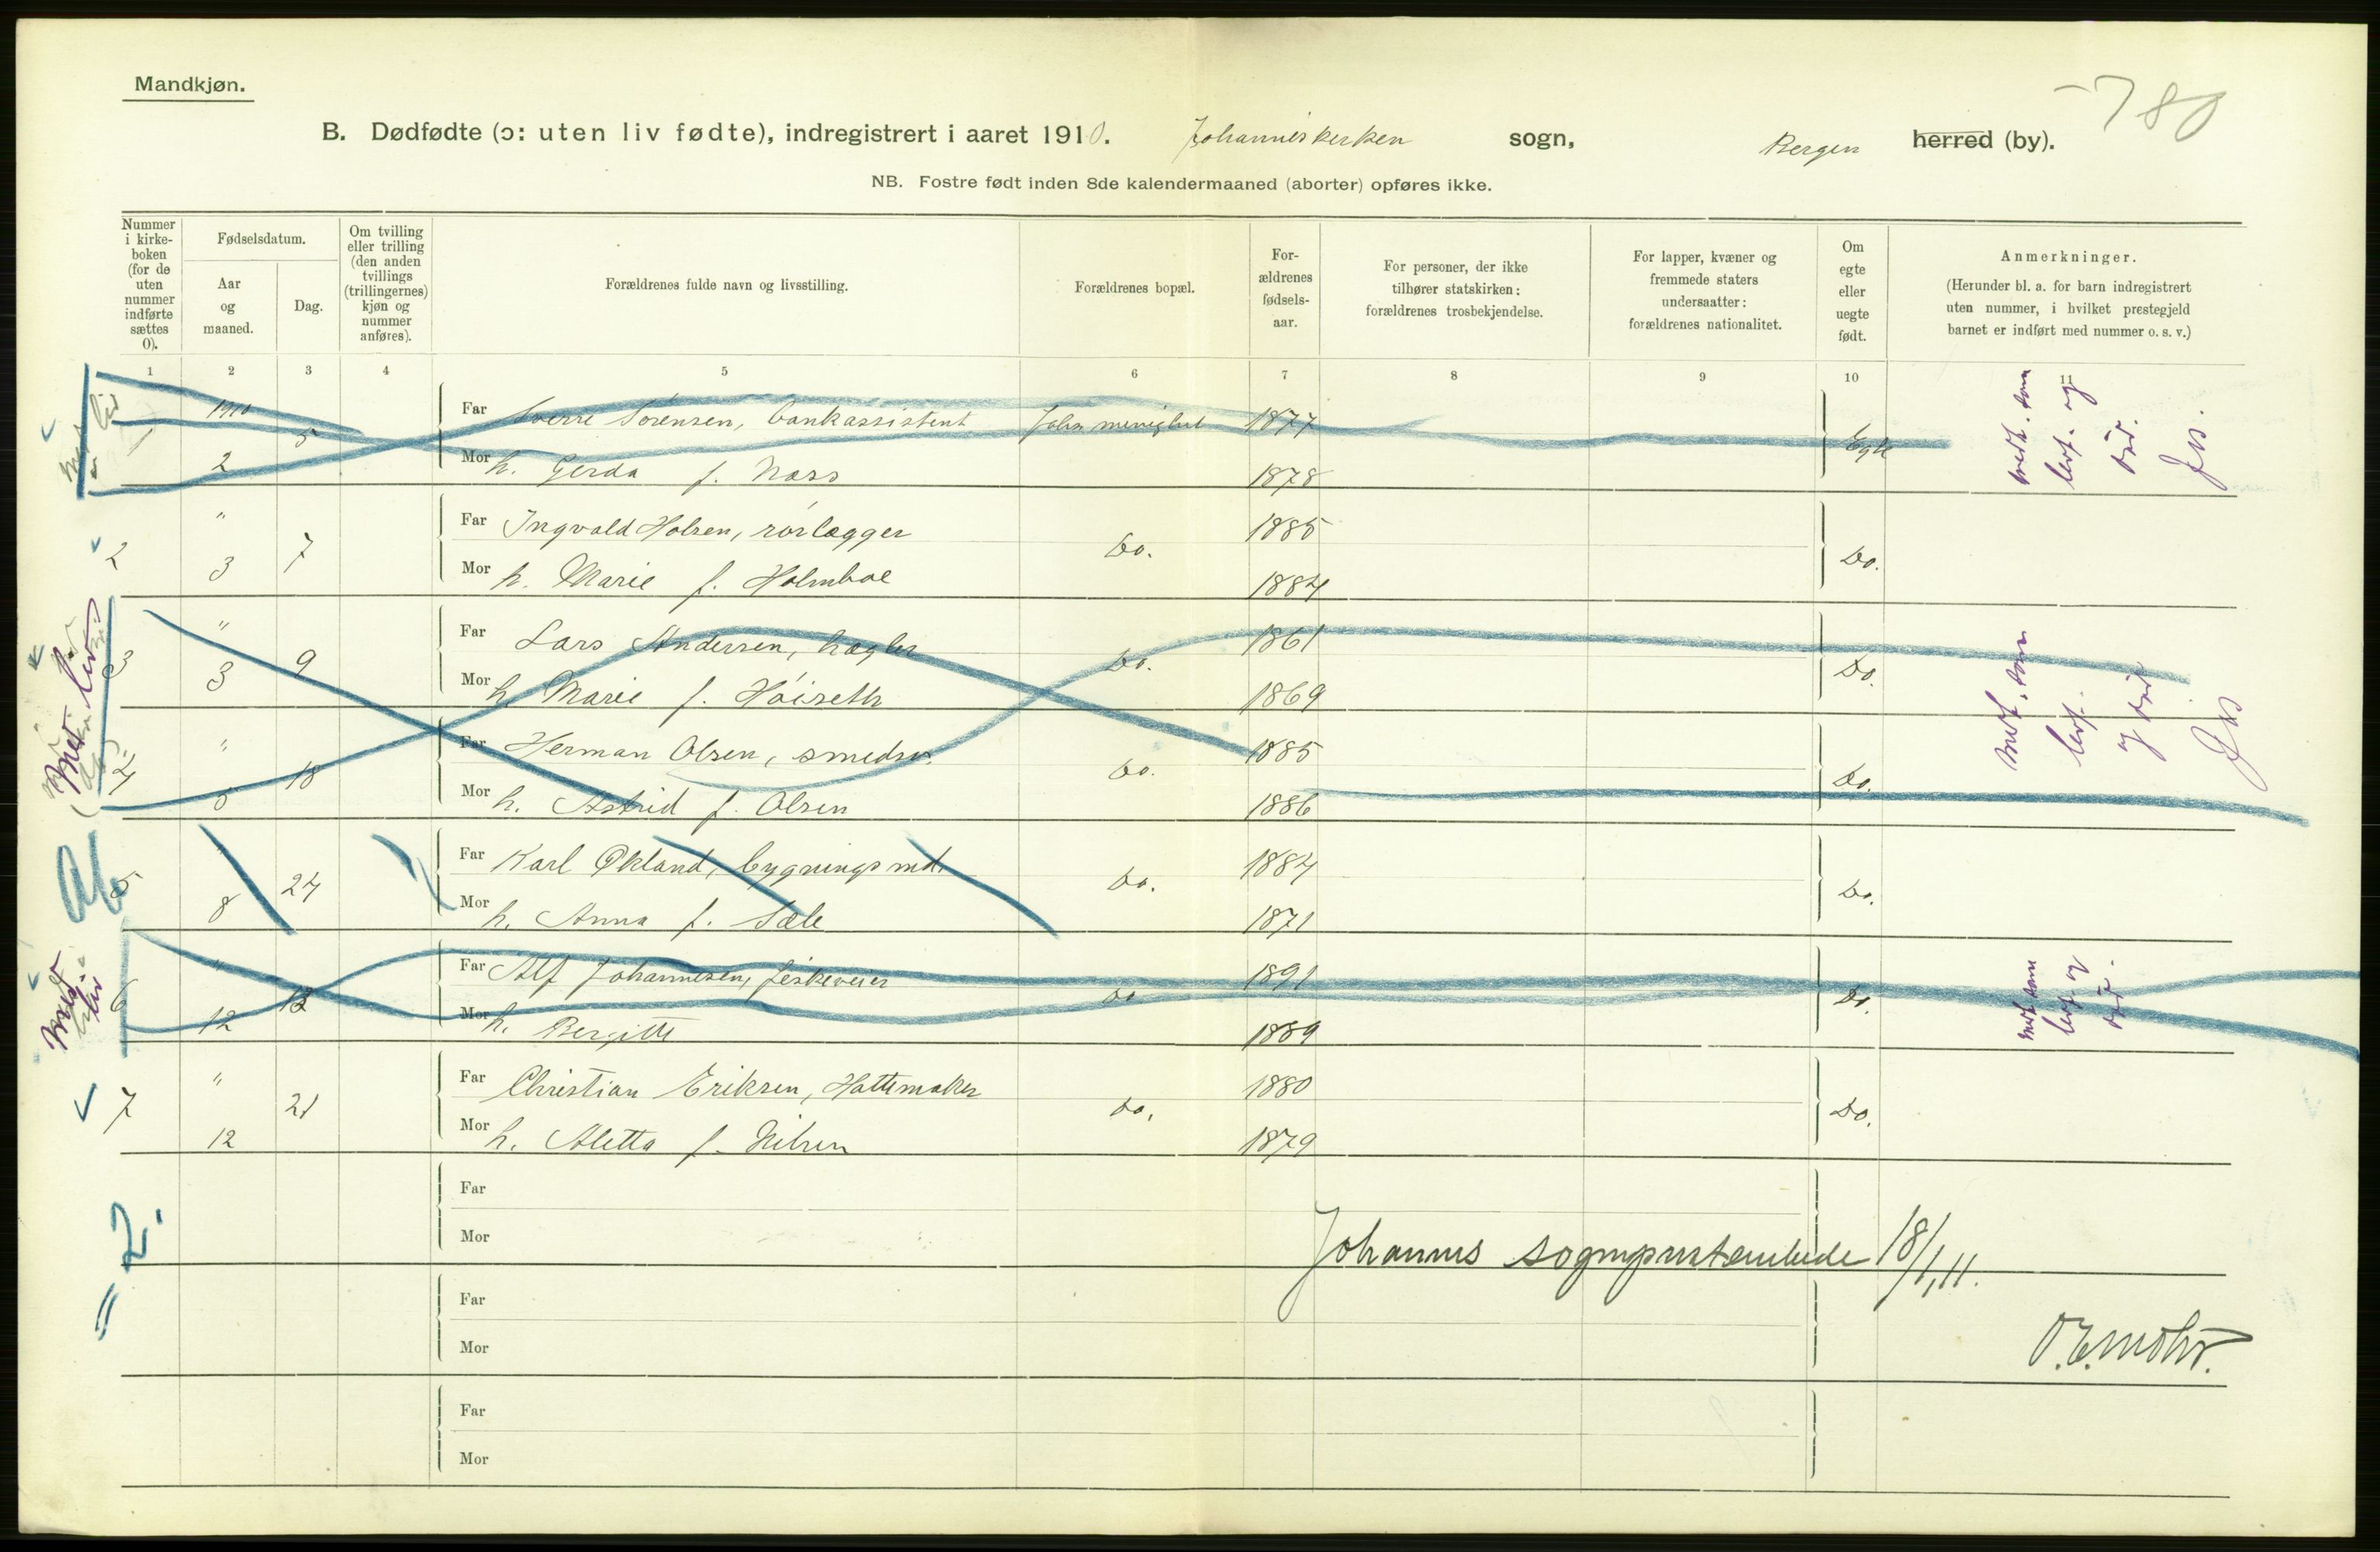 Mandkjøn.
780
B. Dødfødte (ɔ: uten liv fødte), indregistrert i aaret 1910. Johanneskirken sogn, Bergen herred (by).
NB. Fostre født inden 8de kalendermaaned (aborter) opføres ikke.
Nummer i kirkeboken (for de uten nummer indførte sættes 0).
Fødselsdatum.
Aar og maaned.
Dag.
Om tvilling eller trilling (den anden tvillings (trillingernes) kjøn og nummer anføres).
Forældrenes fulde navn og livsstilling.
Forældrenes bopæl.
Forældrenes fødselsaar.
For personer, der ikke tilhører statskirken: forældrenes trosbekjendelse.
For lapper, kvæner og fremmede staters undersaatter: forældrenes nationalitet.
Om egte eller uegte født.
Anmerkninger.
(Herunder bl. a. for barn indregistrert uten nummer, i hvilket prestegjeld barnet er indført med nummer o. s. v.)
1 2 3 4 5 6 7 8 9 10 11
1 1910 2 5 Far Sverre Sørensen, bankassistent Johs menighet 1877 Egte
Mor h. Gerda f. Næss 1878
medt. som levf. og død.
2 " 3 7 Far Ingvald Holsen, rørlægger Do. 1885 Do.
Mor h. Marie f. Holmboe 1884
3 " 3 9 Far Lars Andersen, Do. 1861 Do.
Mor h. Marie f. Höiseth 1869
medt. som levf. og død
4 " 5 18 Far Herman Olsen, smedsv. Do. 1885 Do.
Mor h. Astrid f. Olsen 1886
5 " 8 24 Far Karl Økland, bygningssnd. Do. 1884 Do.
Mor h. Anna f. Sæle 1871
6 " 12 12 Far Alf Johannesen, fiskeveier Do 1891 Do.
Mor h. Bergitte 1889
medt som levf og død.
7 " 12 21 Far Christian Eriksen, Hattemaker Do. 1880 Do.
Mor h. Aletta f. Nilsen 1879
Far
Mor
= 2.
Johannes sogneprestembede 18/1, 11.
Far
Mor
O.E. Mohr.
Far
Mor